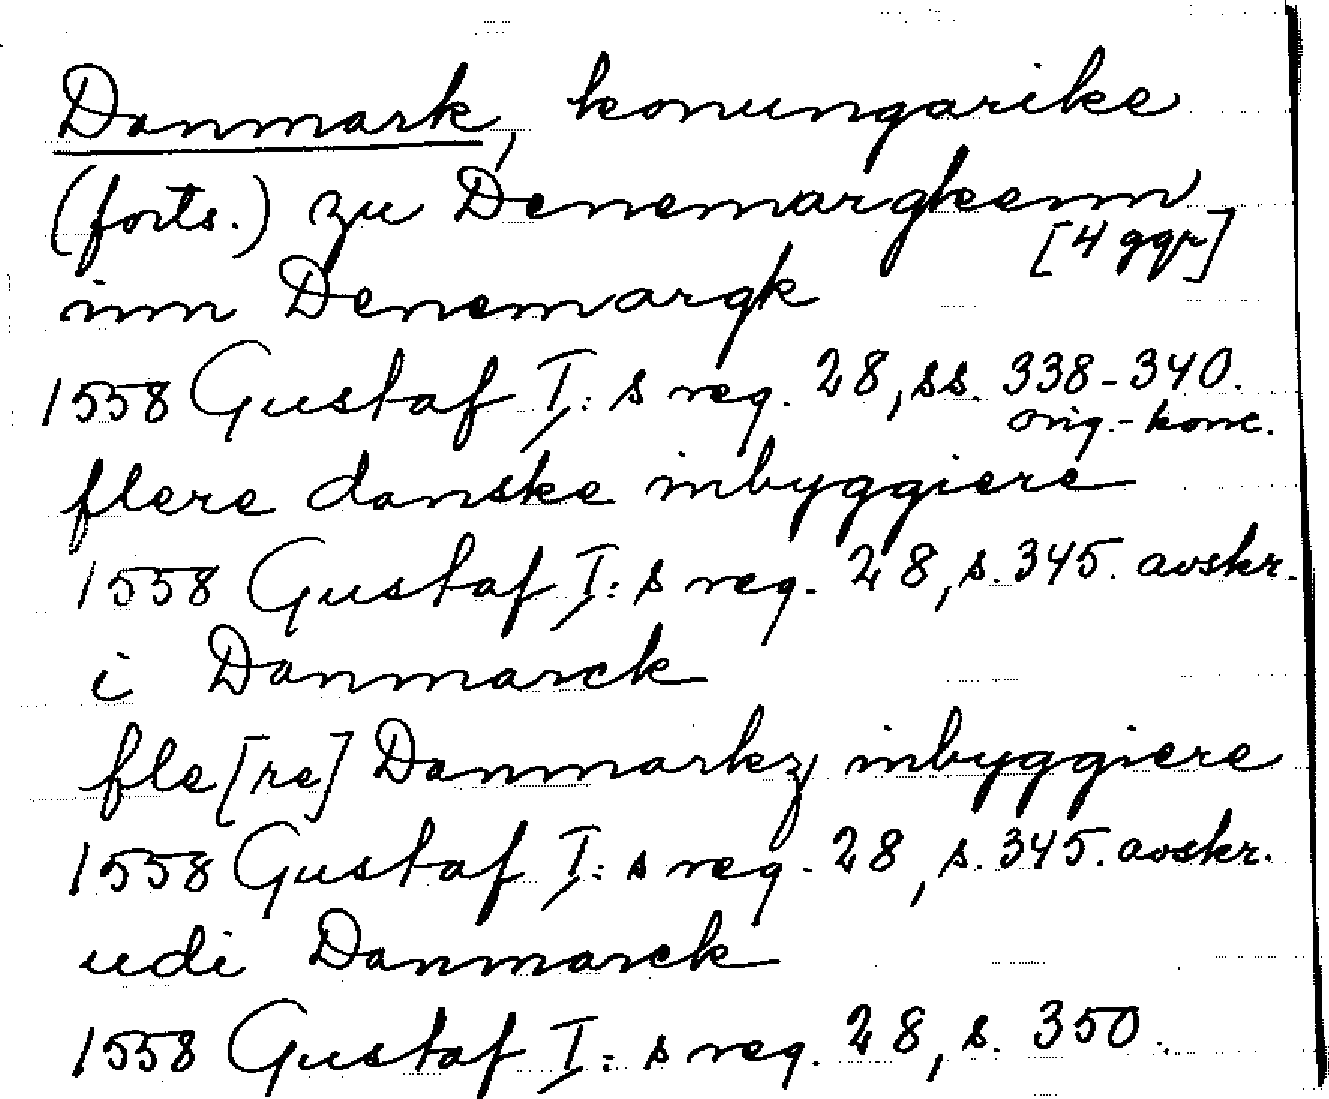 Danmark, konungarike
(forts.) zu Denemargkenn
[4 ggr]
inn Denemargk
1558 Gustaf I:s reg. 28, ss. 338-340.
orig.-konc.
flere danske inbyggiere
1558 Gustaf I:s reg. 28, s. 345. avskr.
i Danmarck
fle[re] Danmarkz inbyggiere
1558 Gustaf I:s reg. 28, s. 345. avskr.
udi Danmarck
1558 Gustaf I:s reg. 28, s. 350.